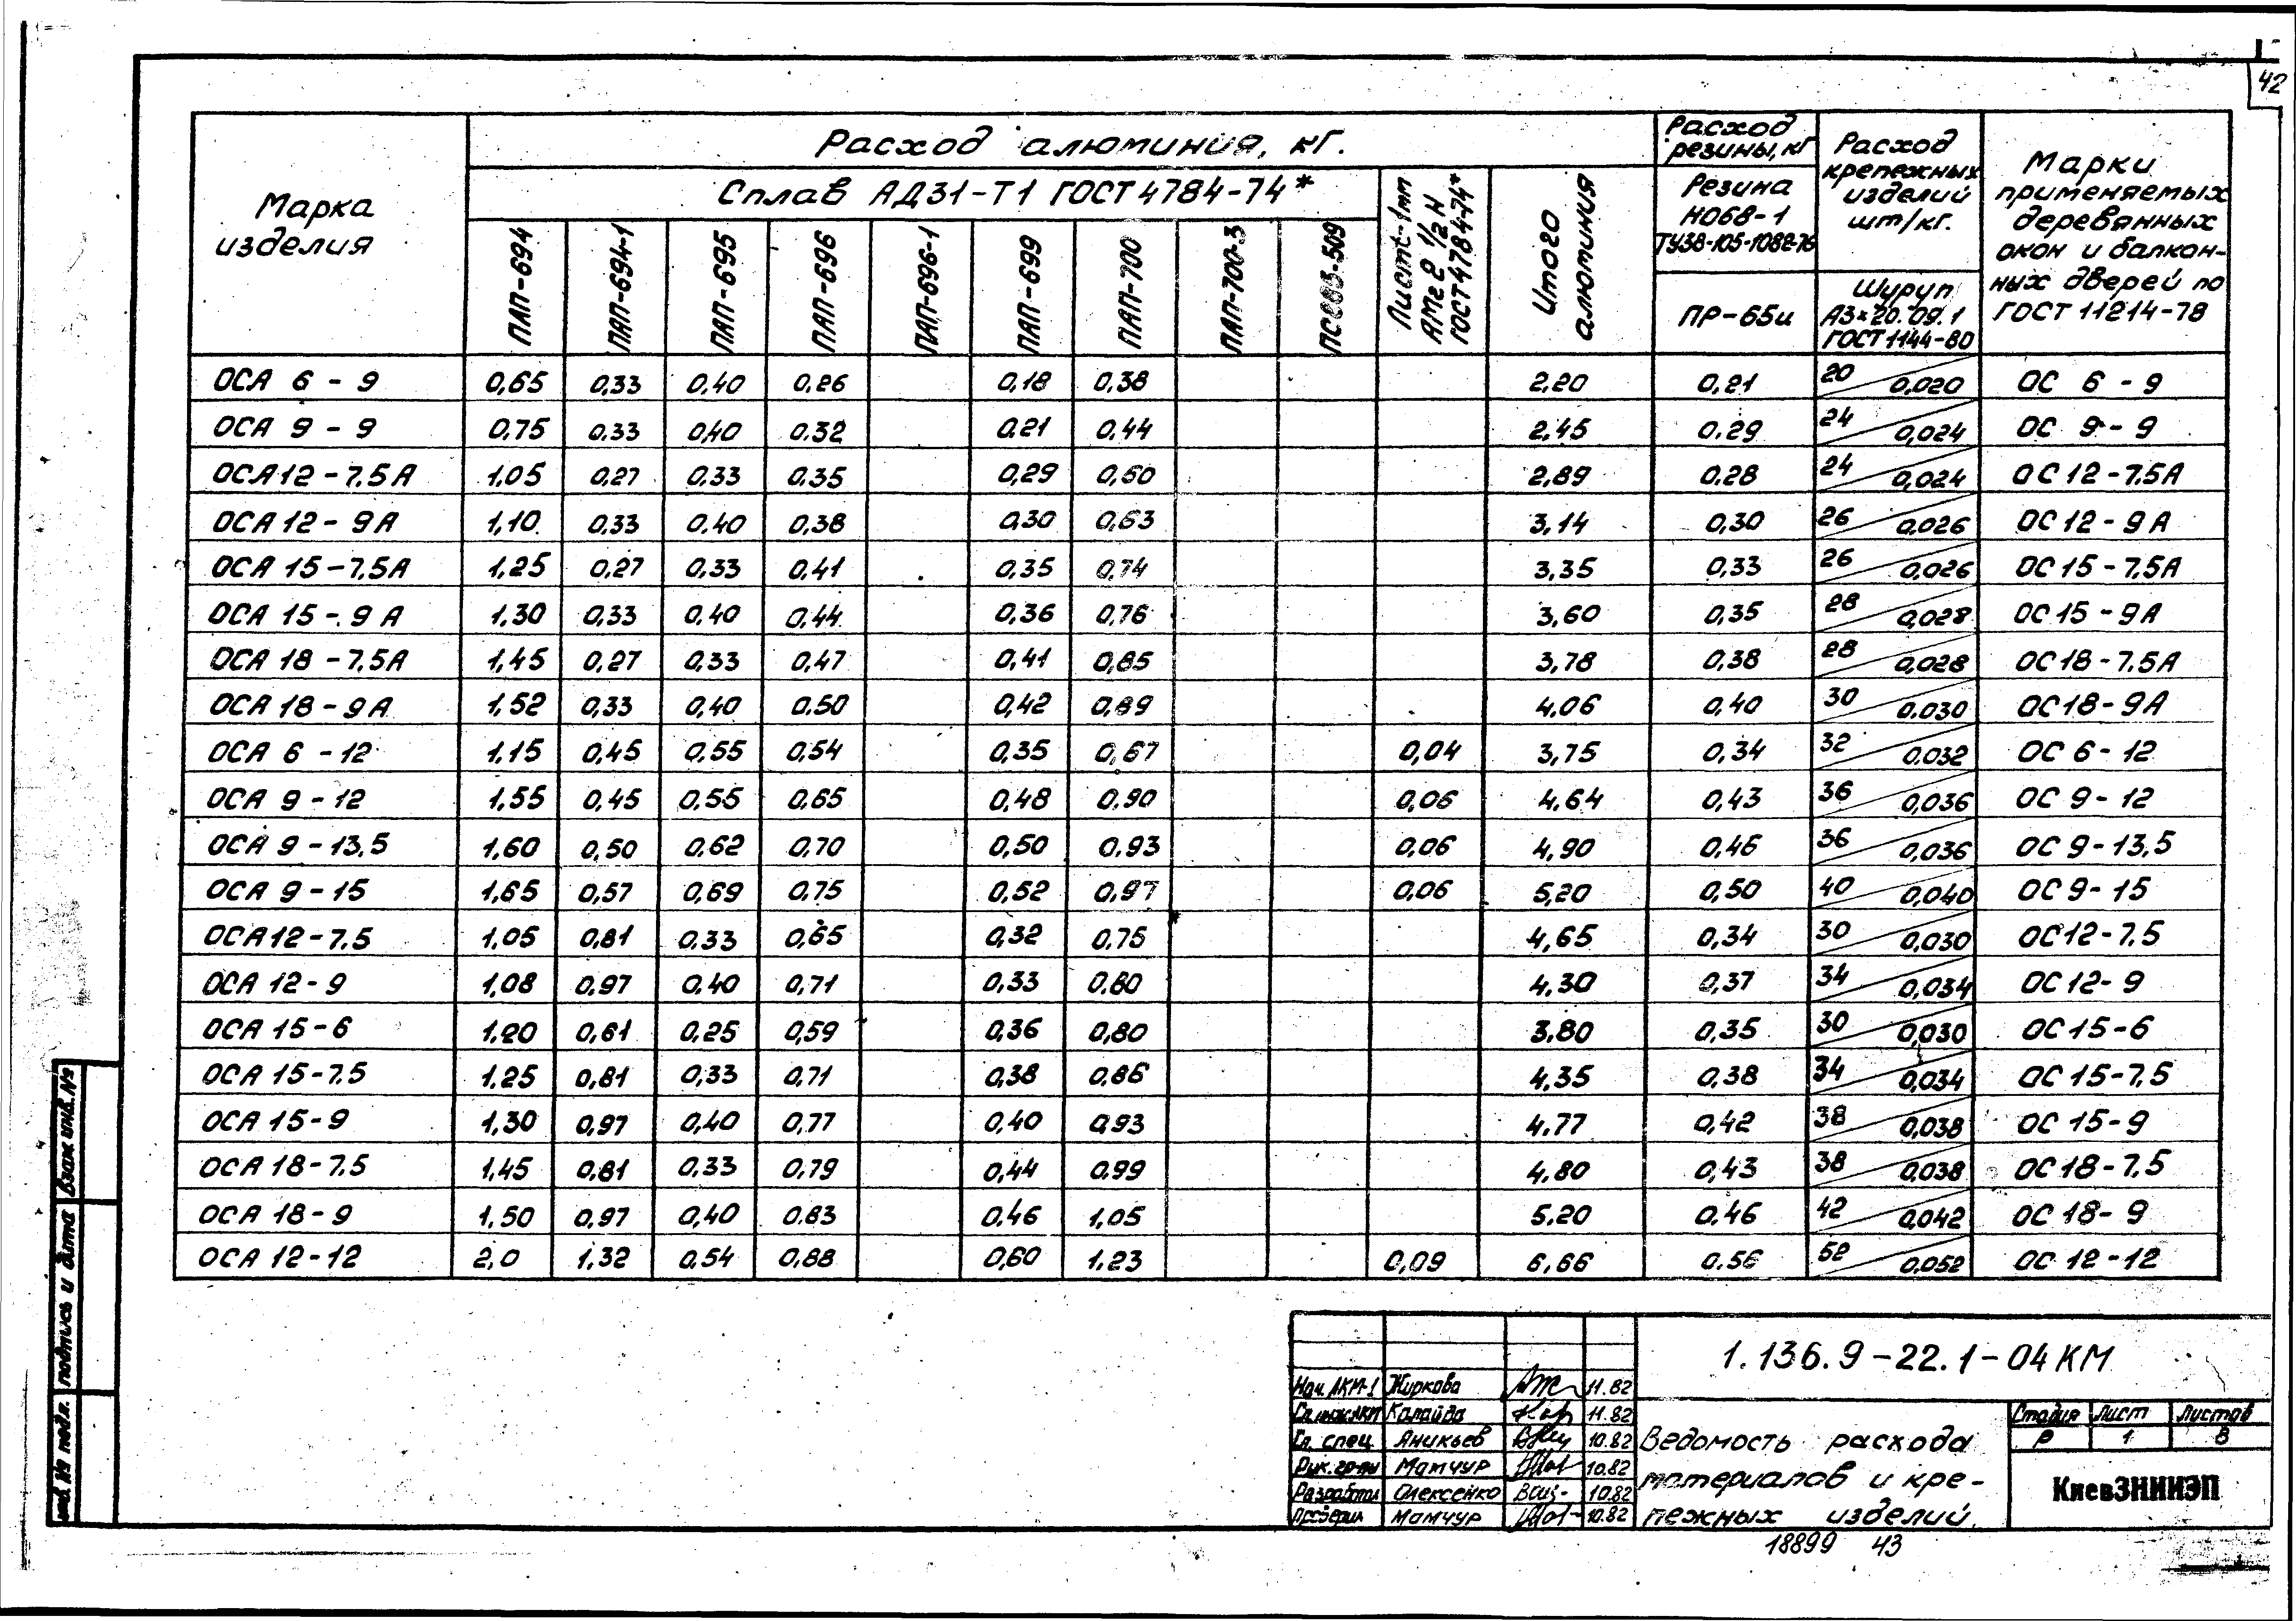 42
Расход алюминия, кг.
Расход
резины, кг
Расход
крепежных
изделий
шт/кг.
Марки
применяемых
деревянных
окон и балкон-
ных дверей по
ГОСТ 11214-78
Марка
изделия
Сплав АД31-Т1 ГОСТ 4784-74*
Лист-1мм
АМг2 1/2 Н
ГОСТ 4784-74*
Итого
алюминия
Резина
НО68-1
ТУ38-105-1082-76
ПАП-694
ПАП-694-1
ПАП-695
ПАП-696
ПАП-696-1
ПАП-699
ПАП-700
ПАП-700-3
ПР-65и
Шуруп
А3×20.09.1
ГОСТ 1144-80
ОСА 6 - 9 0,65 0,33 0,40 0,26 0,18 0,38 2,20 0,21 20 0,020 ОС 6 - 9
ОСА 9 - 9 0,75 0,33 0,40 0,32 0,21 0,44 2,45 0,29 24 0,024 ОС 9 - 9
ОСА 12 - 7,5 А 1,05 0,27 0,33 0,35 0,29 0,60 2,89 0,28 24 0,024 ОС 12 - 7,5А
ОСА 12 - 9А 1,10 0,33 0,40 0,38 0,30 0,63 3,14 0,30 26 0,026 ОС 12 - 9 А
ОСА 15 - 7,5А 1,25 0,27 0,33 0,41 0,35 0,74 3,35 0,33 26 0,026 ОС 15 - 7,5А
ОСА 15 - 9 А 1,30 0,33 0,40 0,44 0,36 0,76 3,60 0,35 28 0,028 ОС 15 - 9А
ОСА 18 - 7,5А 1,45 0,27 0,33 0,47 0,41 0,85 3,78 0,38 28 0,028 ОС 18 - 7,5А
ОСА 18 - 9А 1,52 0,33 0,40 0,50 0,42 0,89 4,06 0,40 30 0,030 ОС 18 - 9А
ОСА 6 - 12 1,15 0,45 0,55 0,54 0,35 0,67 0,04 3,75 0,34 32 0,032 ОС 6 - 12
ОСА 9 - 12 1,55 0,45 0,55 0,65 0,48 0,90 0,06 4,64 0,43 36 0,036 ОС 9 - 12
ОСА 9 - 13,5 1,60 0,50 0,62 0,70 0,50 0,93 0,06 4,90 0,46 36 0,036 ОС 9 - 13,5
ОСА 9 - 15 1,65 0,57 0,69 0,75 0,52 0,97 0,06 5,20 0,50 40 0,040 ОС 9 - 15
ОСА 12 - 7,5 1,05 0,81 0,33 0,65 0,32 0,75 4,65 0,34 30 0,030 ОС 12 - 7,5
ОСА 12 - 9 1,08 0,97 0,40 0,71 0,33 0,80 4,30 0,37 34 0,034 ОС 12 - 9
ОСА 15 - 6 1,20 0,61 0,25 0,59 0,36 0,80 3,80 0,35 30 0,030 ОС 15 - 6
ОСА 15 - 7,5 1,25 0,81 0,33 0,71 0,38 0,86 4,35 0,38 34 0,034 ОС 15 - 7,5
ОСА 15 - 9 1,30 0,97 0,40 0,77 0,40 0,93 4,77 0,42 38 0,038 ОС 15 - 9
ОСА 18 - 7,5 1,45 0,81 0,33 0,79 0,44 0,99 4,80 0,43 38 0,038 ОС 18 - 7,5
ОСА 18 - 9 1,50 0,97 0,40 0,83 0,46 1,05 5,20 0,46 42 0,042 ОС 18 - 9
ОСА 12 - 12 2,0 1,32 0,54 0,88 0,60 1,23 0,09 6,66 0,56 52 0,052 ОС 12 - 12
Взам инв. №
подпись и дата
инв. № подл.
1.136.9-22.1-04КМ
Нач. АКМ-1 Жиркова 11.82
Калайда 11.82
Гл. спец. Аникьев 10.82
Рук. гр-пы Мамчур 10.82
Разработал Олексенко 10.82
Проверил Мамчур 10.82
Ведомость расхода
материалов и кре-
пежных изделий.
Стадия Лист Листов
Р 1 8
КиевЗНИИЭП
18899 43